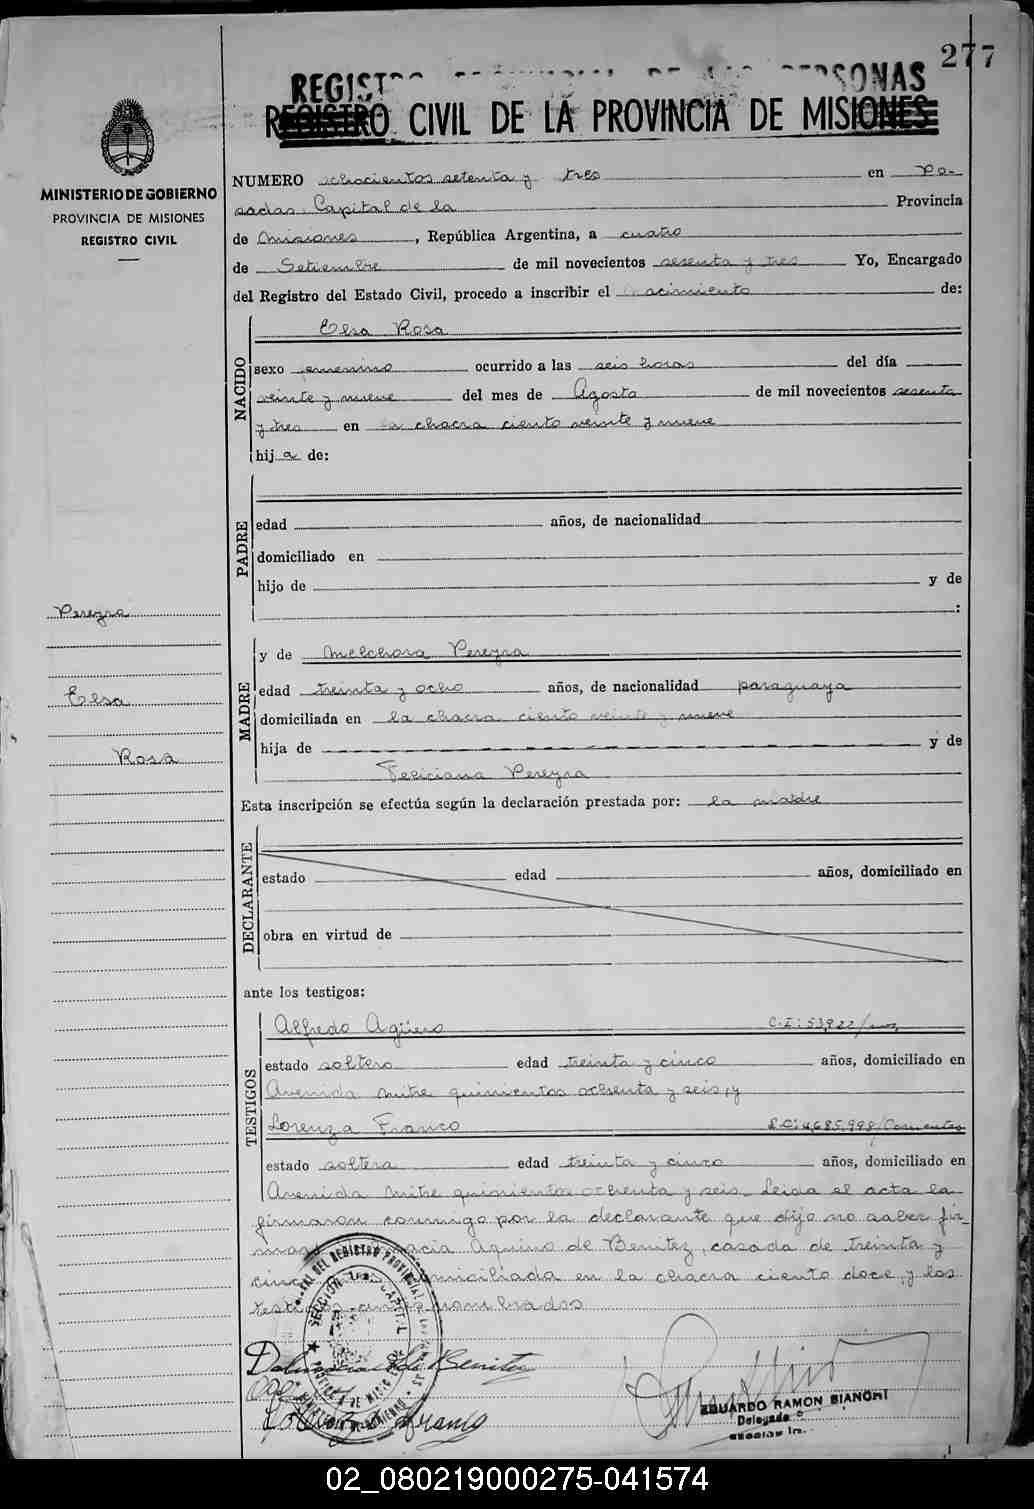 277
REGISTRO PROVINCIAL DE LAS PERSONAS
REGISTRO CIVIL DE LA PROVINCIA DE MISIONES
MINISTERIO DE GOBIERNO
PROVINCIA DE MISIONES
REGISTRO CIVIL
NUMERO ochocientos setenta y tres en Po-
sadas Capital de la Provincia
de Misiones, República Argentina, a cuatro
de Setiembre de mil novecientos sesenta y tres Yo, Encargado
del Registro del Estado Civil, procedo a inscribir el nacimiento de:
NACIDO
Elsa Rosa
sexo femenino ocurrido a las seis horas del día
veinte y nueve del mes de Agosto de mil novecientos sesenta
y tres en la chacra ciento veinte y nueve
hija de:
PADRE
edad años, de nacionalidad
domiciliado en
hijo de y de
:
Pereyra
Elsa
Rosa
MADRE
y de Melchora Pereyra
edad treinta y ocho años, de nacionalidad paraguaya
domiciliada en la chacra ciento veinte y nueve
hija de y de
Feliciana Pereyra
Esta inscripción se efectúa según la declaración prestada por: la madre
DECLARANTE
estado edad años, domiciliado en
obra en virtud de
ante los testigos:
TESTIGOS
Alfredo Agüero C.I: 53,922/
estado soltero edad treinta y cinco años, domiciliado en
Avenida Mitre quinientos ochenta y seis, y
Lorenza Franco L.C: 4,685,998/Corrientes
estado soltera edad treinta y cinco años, domiciliado en
Avenida Mitre quinientos ochenta y seis. Leida el acta la
firmaron conmigo por la declarante que dijo no saber fir-
mar Aquino de Benitez, casada de treinta y
domiciliada en la chacra ciento doce, y los
testigos nombrados
SECCION CAPITAL
de Benitez
Franco
EDUARDO RAMON BIANCHI
Delegado
02_080219000275-041574